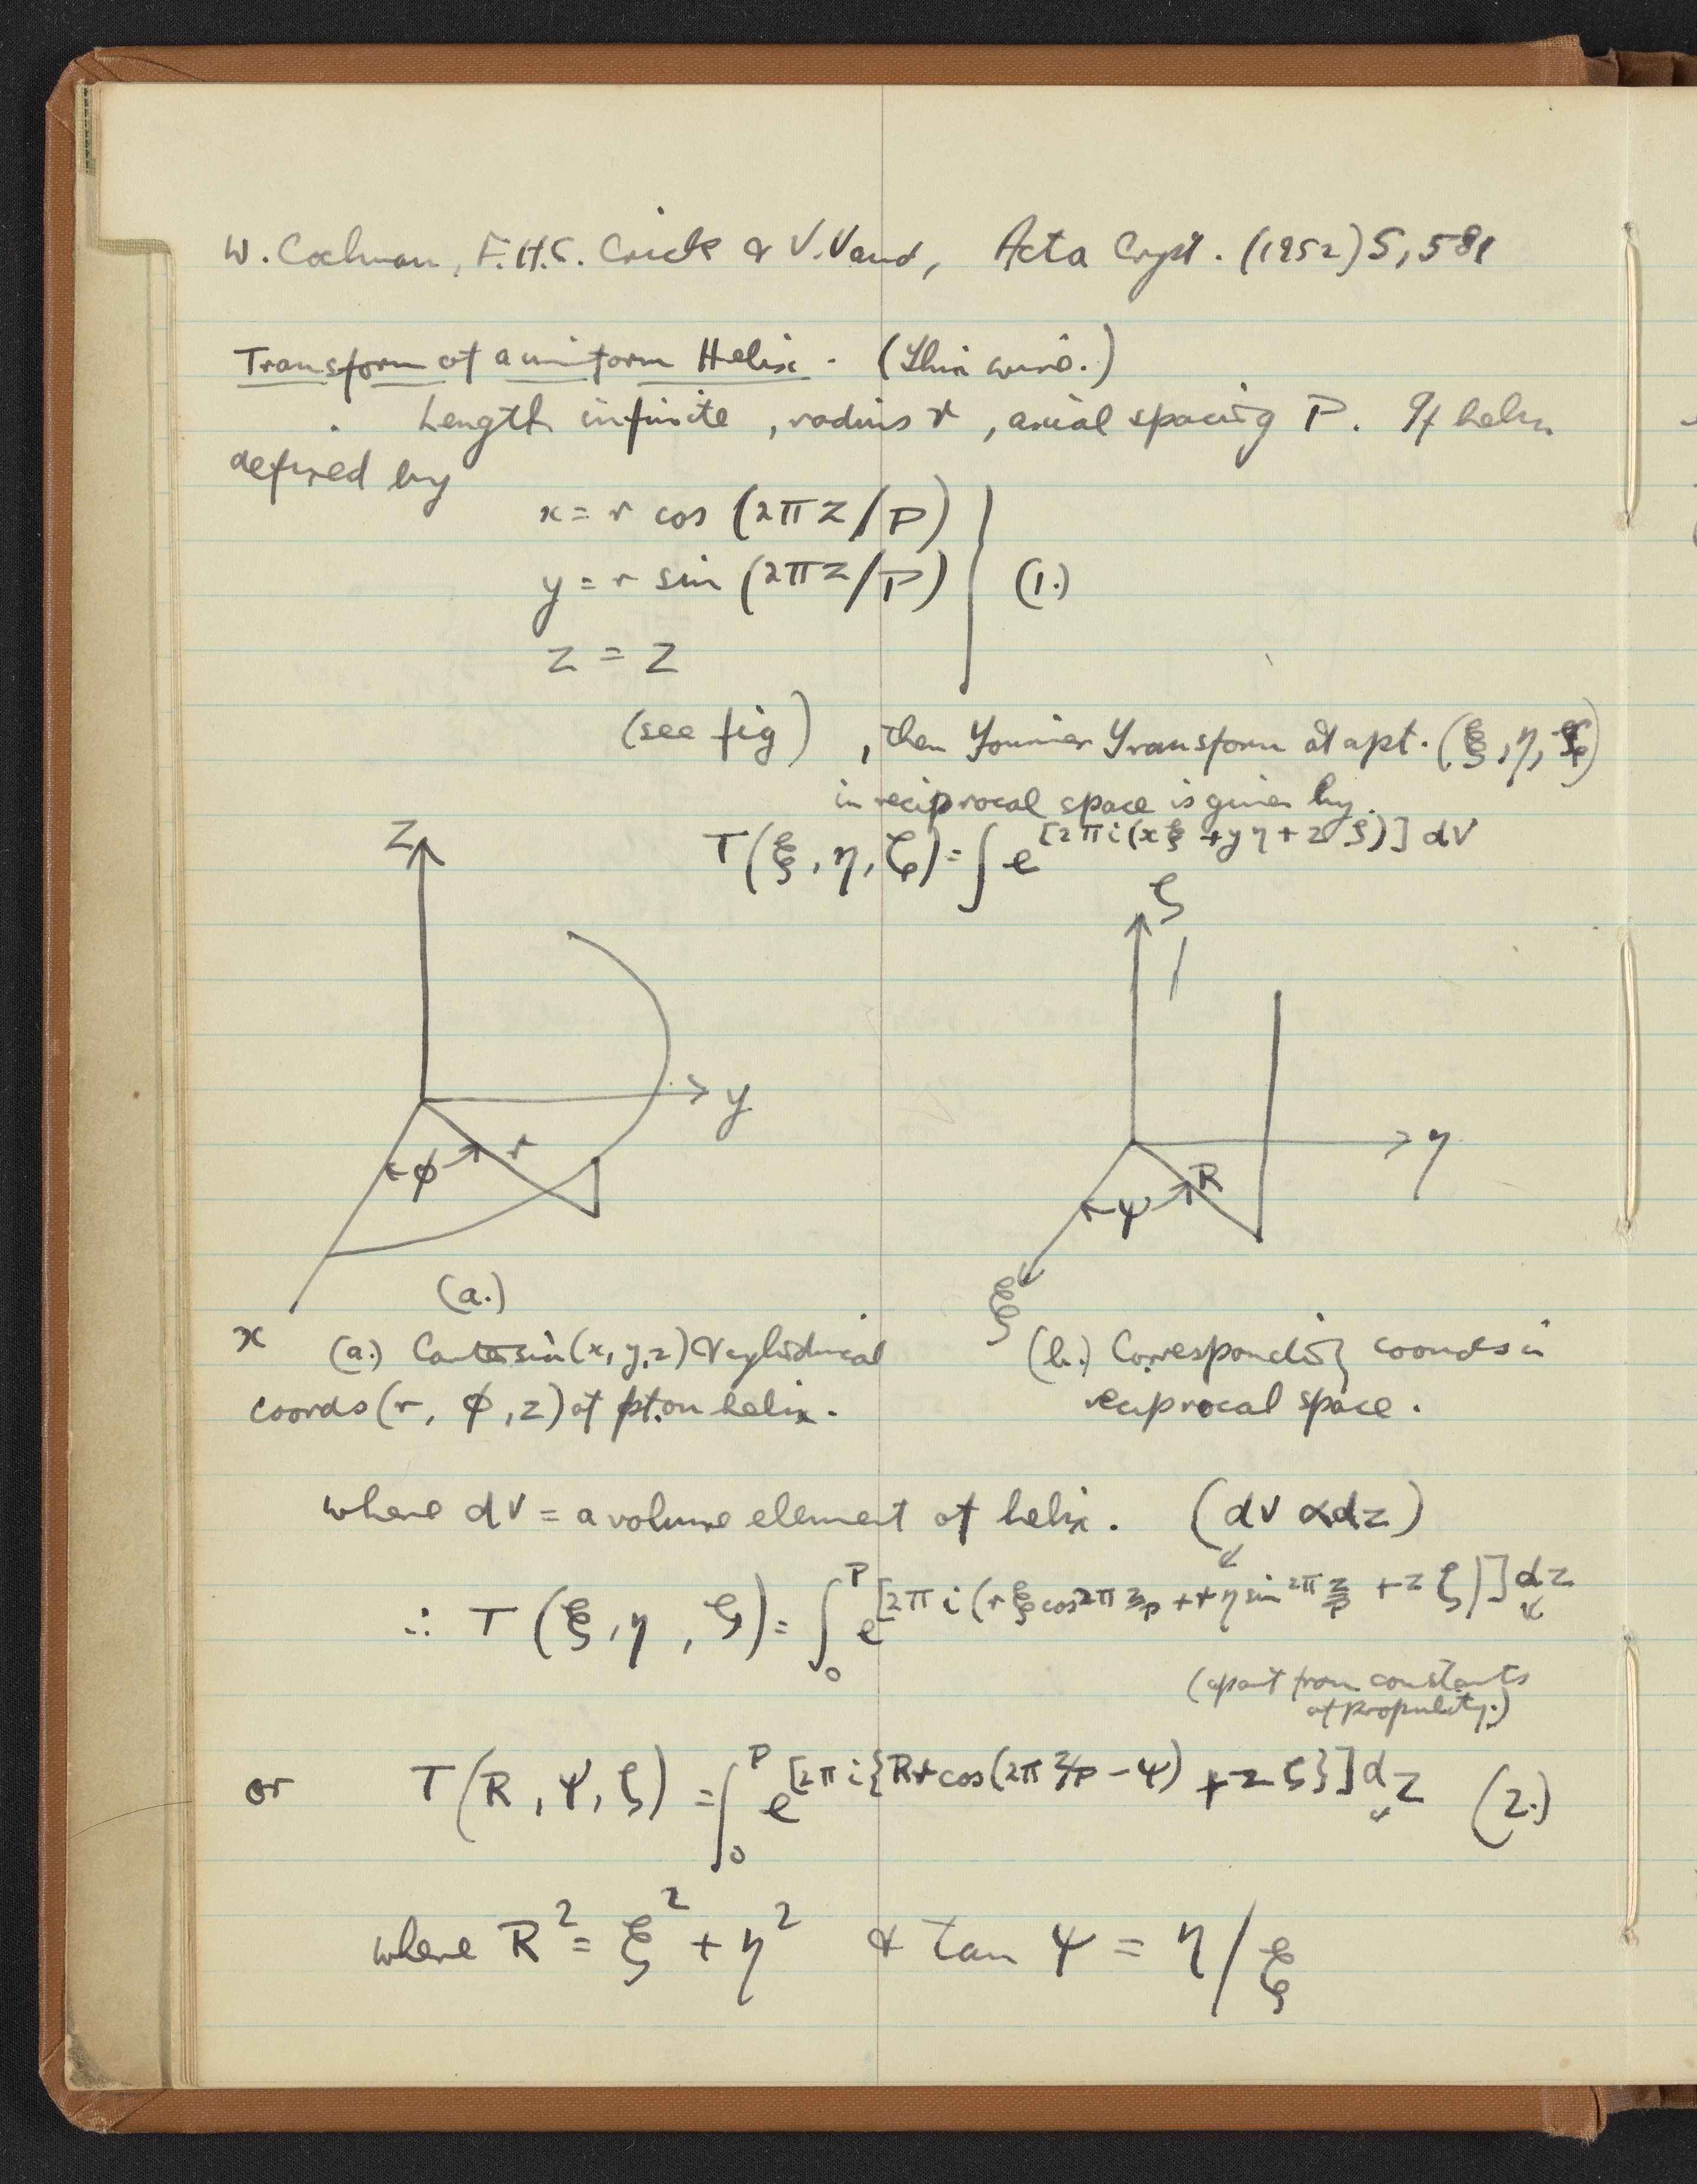 W. Cochran, F.H.C. Crick & V. Vand, Acta Cryst. (1952) 5, 581
Transform of a uniform Helix. (Thin wire.)
Length infinite, radius r, axial spacing P. If helix
defined by
x = r cos (2πz/P)
y = r sin (2πz/P) (1.)
z = z
(see fig), then Fourier Transform at a pt. (ξ, η, ζ)
in reciprocal space is given by.
T(ξ, η, ζ) = ∫ e^[2πi(xξ + yη + zζ)] dV
z
y
r
φ
x
(a.)
ζ
η
R
ψ
ξ
(a.) Cartesin (x, y, z) & cylindrical
coords (r, φ, z) of pt. on helix.
(b.) Corresponding coords in
reciprocal space.
where dV = a volume element of helix. (dV ∝ dz)
∴ T(ξ, η, ζ) = ∫₀ᴾ e^[2πi(rξ cos 2π z/P + rη sin 2π z/P + zζ)] dz
(apart from constants
of
or T(R, ψ, ζ) = ∫₀ᴾ e^[2πi{Rr cos(2π z/P − ψ) + zζ}] dz (2.)
where R² = ξ² + η² & tan ψ = η/ξ